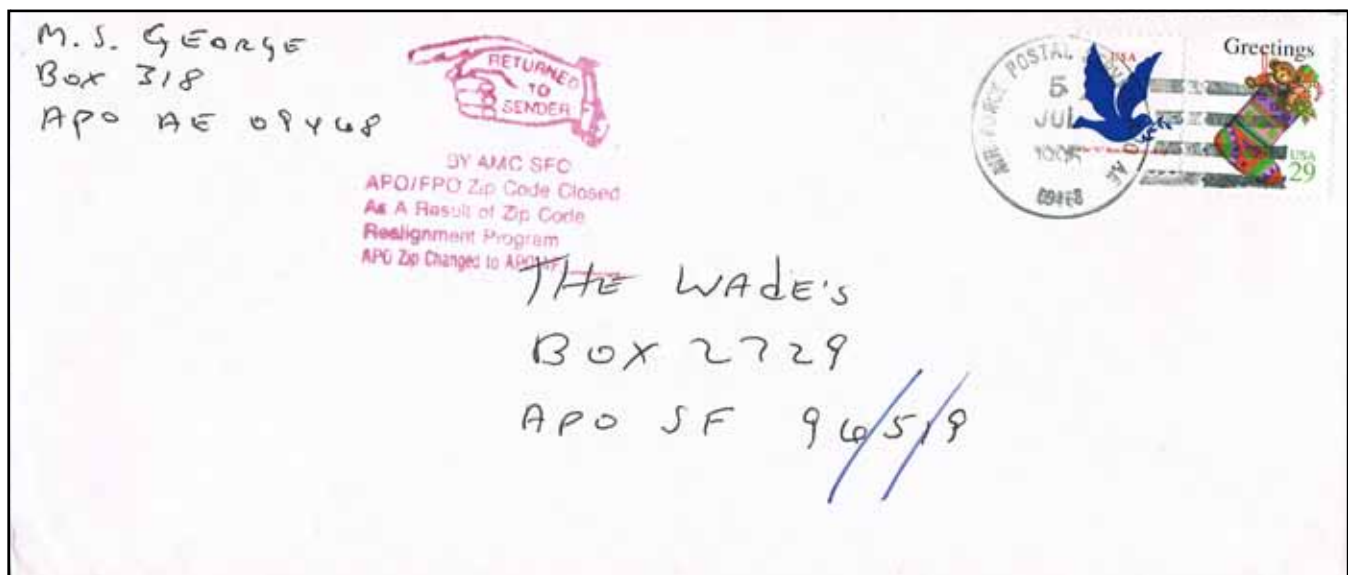 M. S. GEORGE
BOX 318
APO AE 09468
RETURNED
TO
SENDER
BY AMC SFO
APO/FPO Zip Code Closed
As A Result of Zip Code
Realignment Program
APO Zip Changed to
AIR FORCE POSTAL
5
JUL
AE
09468
USA
Greetings
USA
29
THE WADE'S
BOX 2729
APO SF 96519